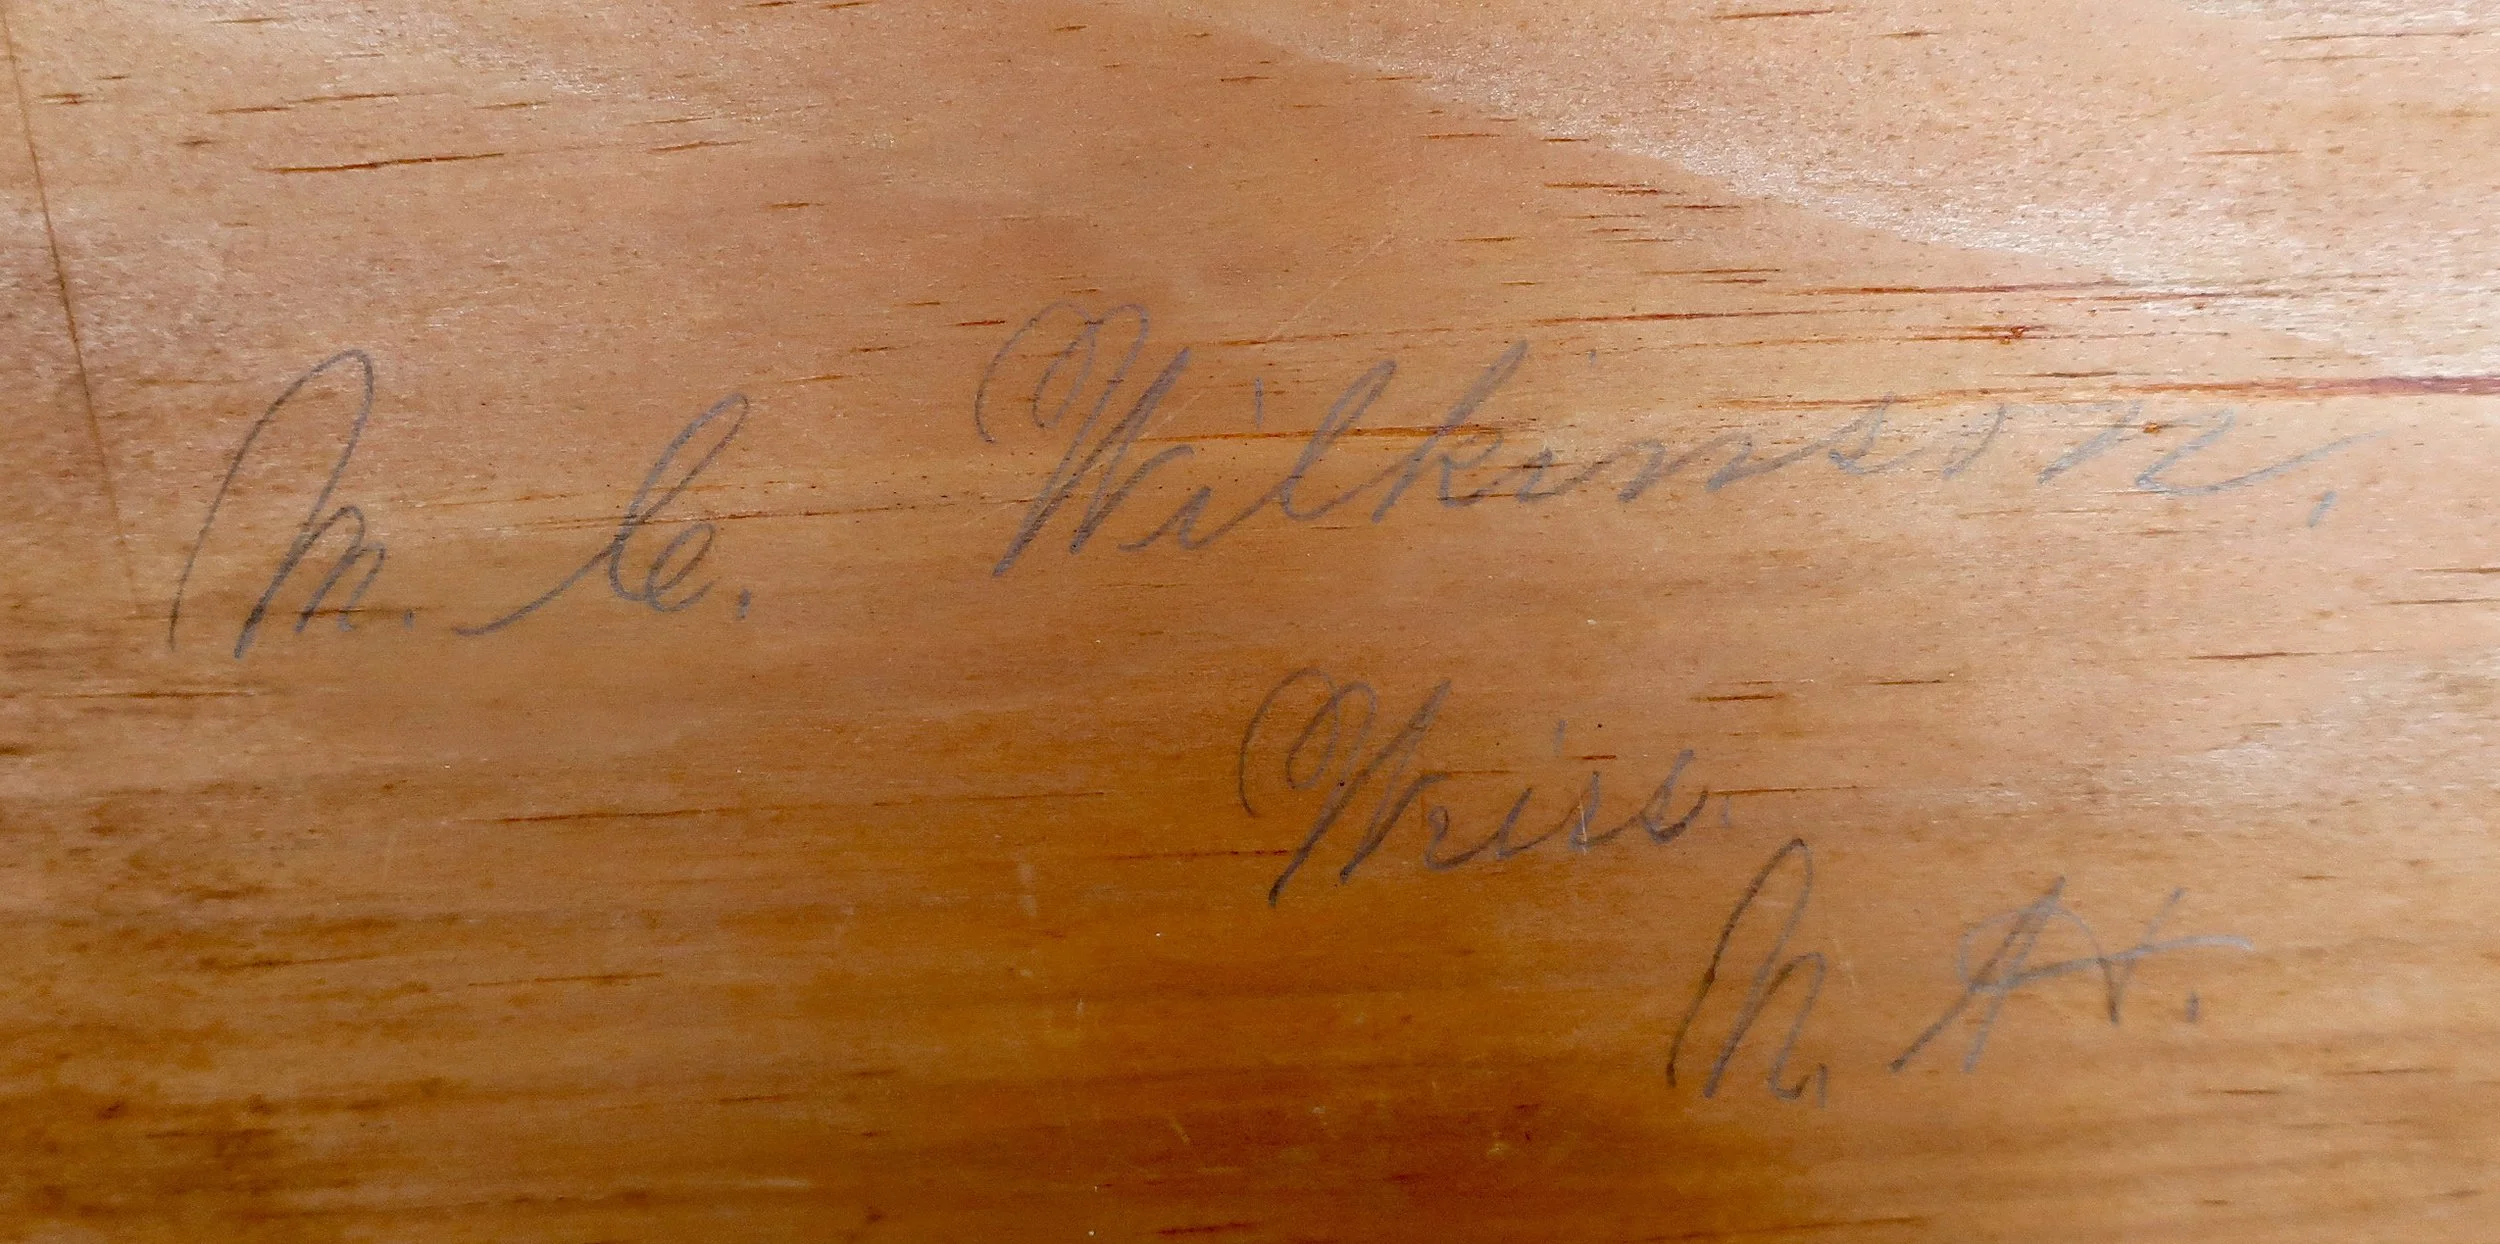 M. C. Wilkinson,
Weirs.
N. H.